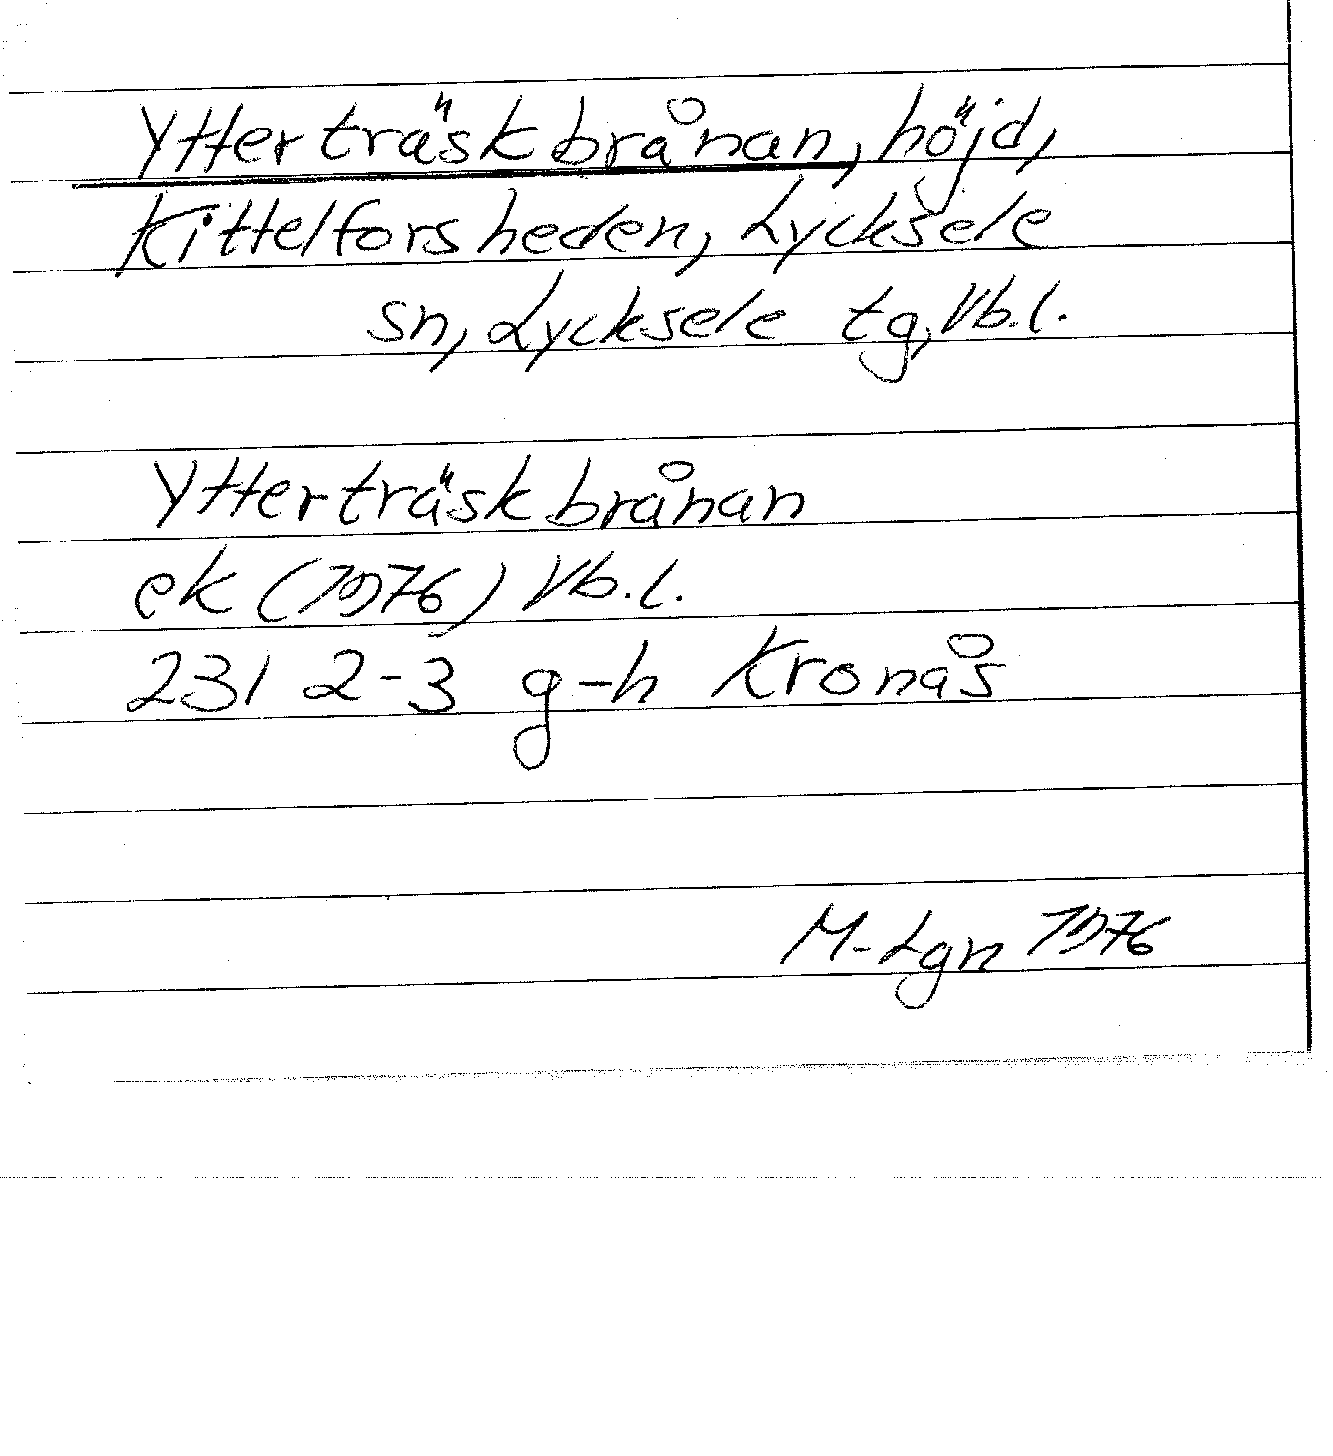 Ytterträskbrånan, höjd,
Kittelforsheden, Lycksele
sn, Lycksele tg, Vb.l.
Ytterträskbrånan
ek (1976) Vb.l.
231 2-3 g-h Kronås
M-Lgn 1976